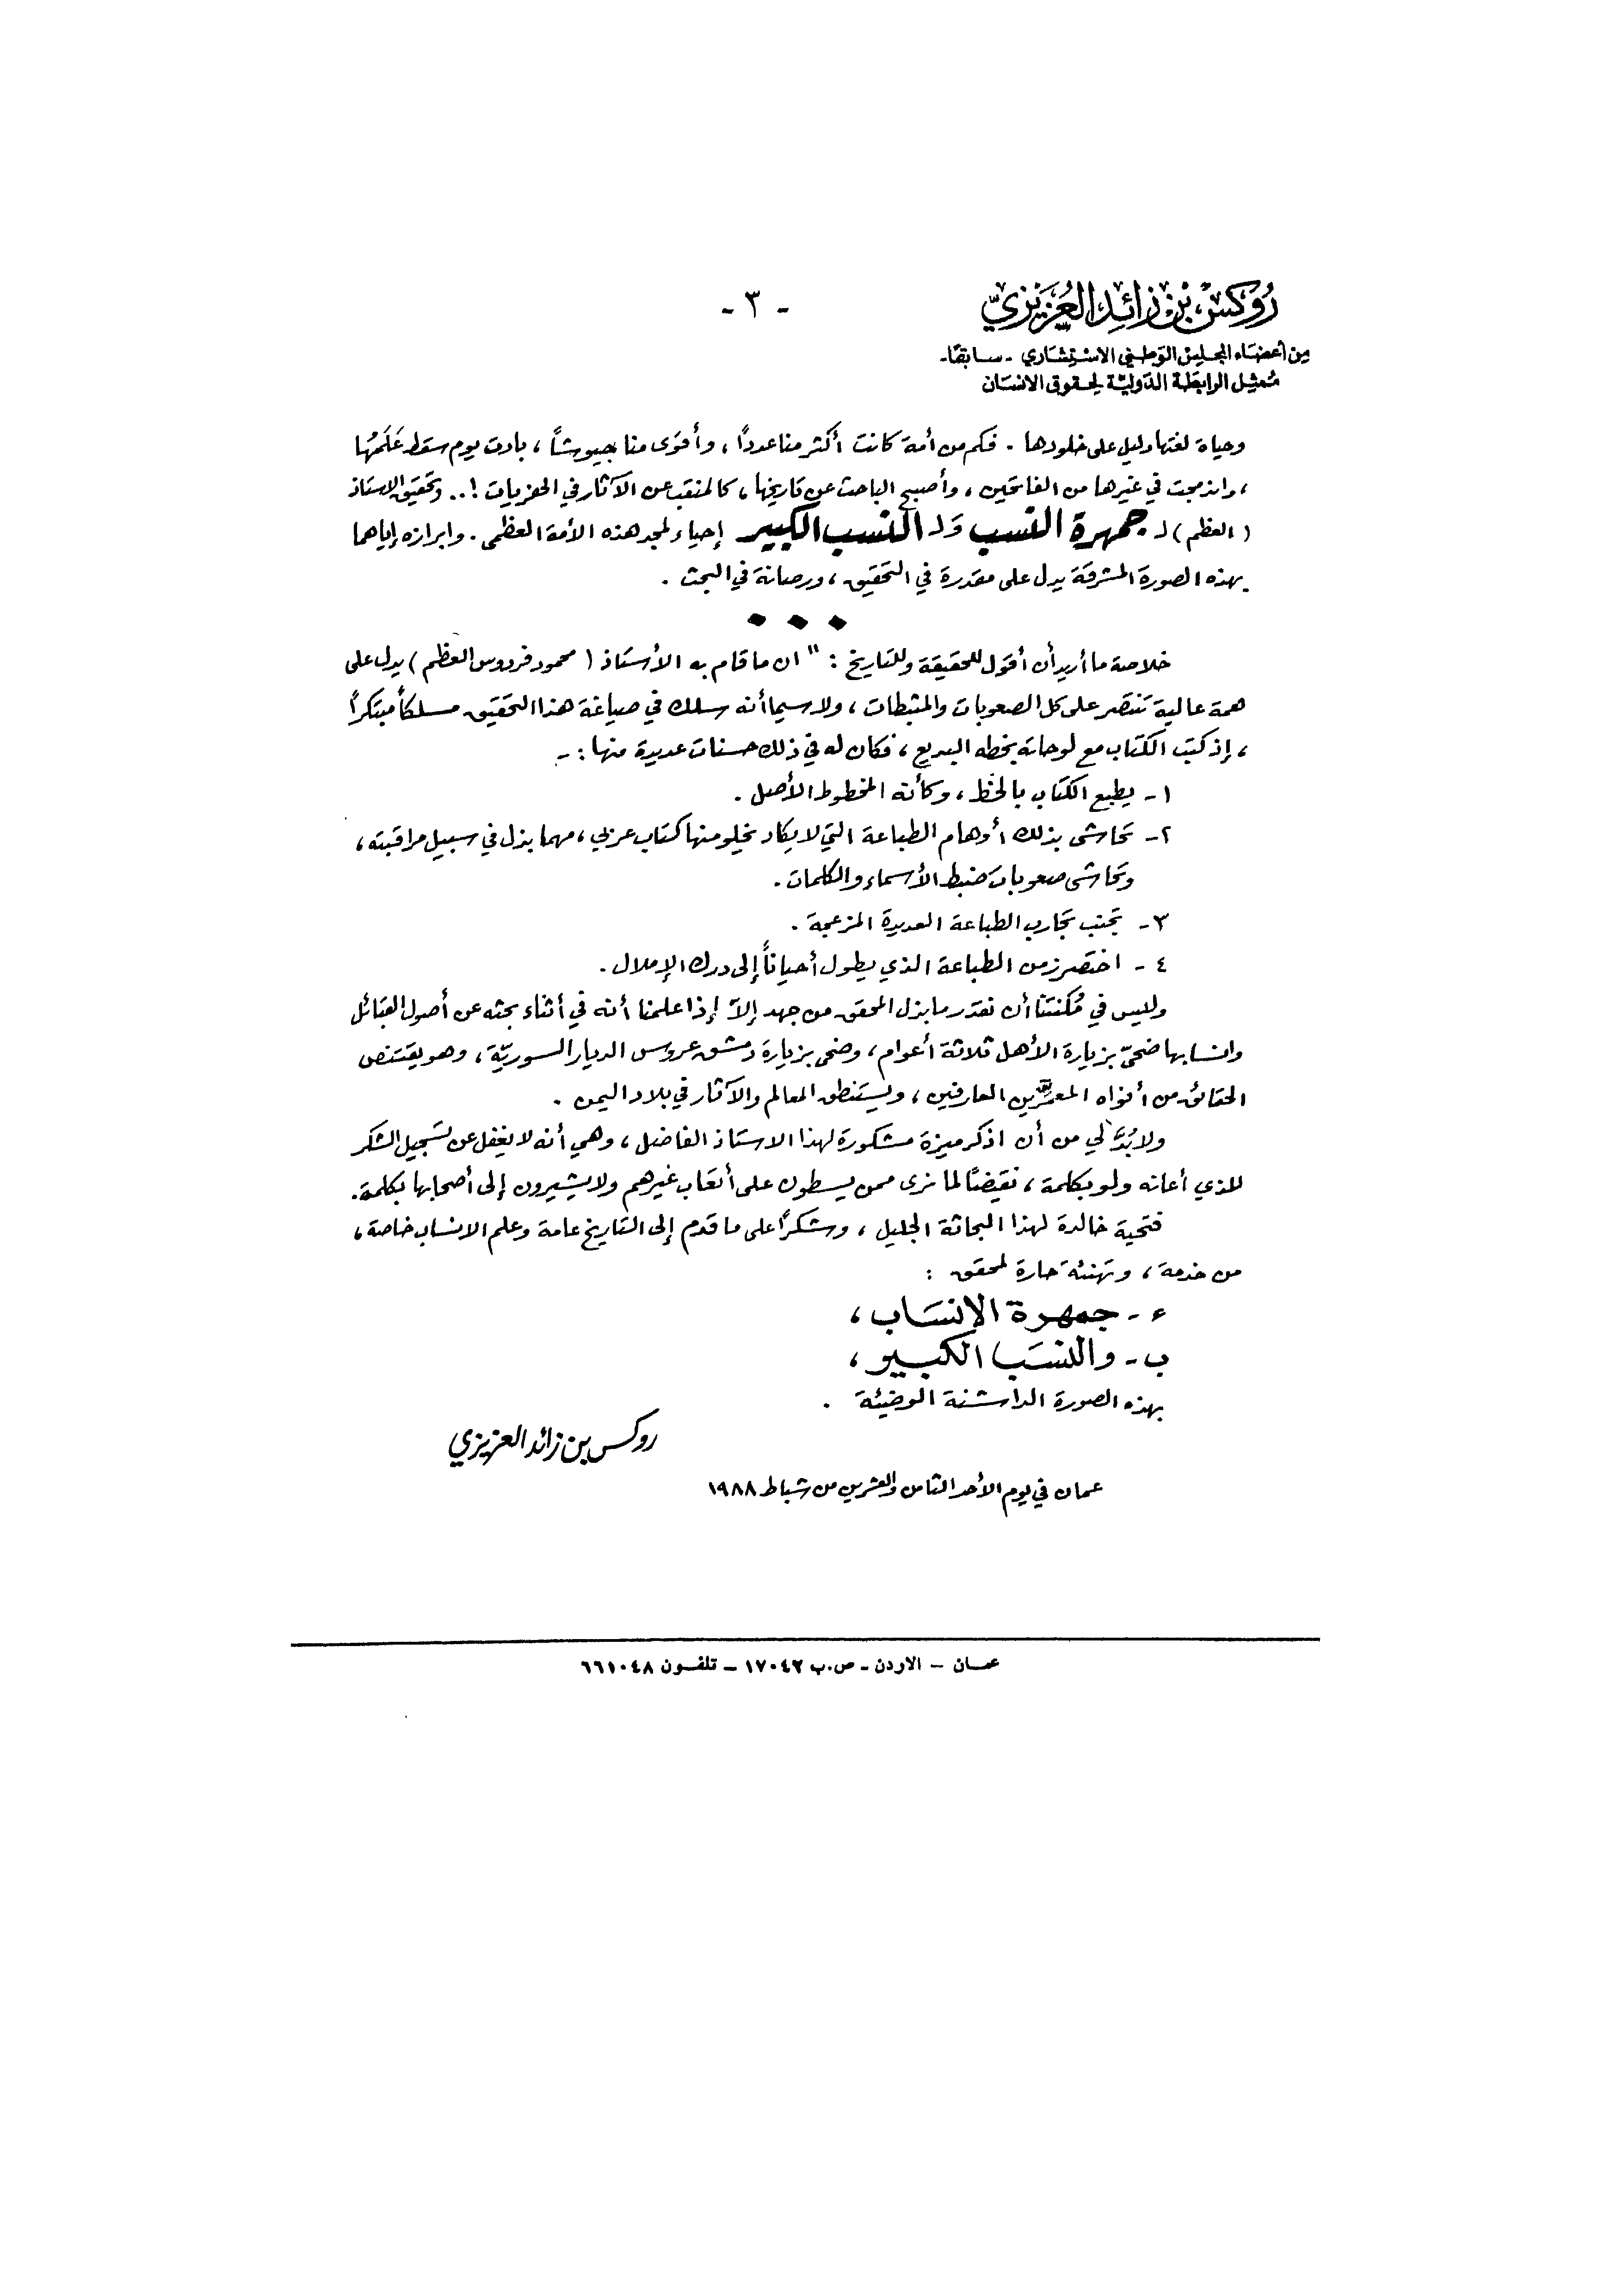 رُوكسْ بْن زائِد العُزَيْزيّ
- ٣ -
مِن أعضَاء المجلِس الوَطني الاستِشَاري - سَابقًا-
مُمثِل الرابطَة الدَوليّة لحقوق الانسَان
وحياة لغتها دليل على خلودها . فكم من أمة كانت أكثر منا عدداً ، وأقوَى منا جيوشاً ، بادت يوم سقط عَلَمُها
، واندمجت في غيرها من الفاتحين ، وأصبح الباحث عن تاريخها ، كالمنقب عن الآثار في الحفريات ! .. وتحقيق الاستاذ
( العظم ) لـ جمهرة النسب وَلـ النسب الكبير إحياء لمجد هذه الأمة العظمى . وابرازه إياهما
بهذه الصورة المشرقة يدل على مقدرة في التحقيق ، ورصانة في البحث .
خلاصة ما أريد أن أقول للحقيقة وللتاريخ : " ان ما قام به الأستاذ ( محمود فردوس العظم ) يدل على
همة عالية تنتصر على كل الصعوبات والمثبطات ، ولا سيما أنه سلك في صياغة هذا التحقيق مسلكاً مبتكراً
، إذ كتب الكتاب مع لوحاته بخطه البديع ، فكان له في ذلك حسنات عديدة منها : -
١- يطبع الكتاب بالخط ، وكأنه المخطوط الأصل .
٢- تحاشى بذلك أوهام الطباعة التي لا يكاد يخلو منها كتاب عربي ، مهما بذل في سبيل مراقبته ،
وتحاشى صعوبات ضبط الأسماء والكلمات .
٣- تجنب تجارب الطباعة العديدة المزعجة .
٤ - اختصر زمن الطباعة الذي يطول أحياناً إلى درك الإملال .
وليس في مُكنتنا أن نقدر ما بذل المحقق من جهد إلاّ إذا علمنا أنه في أثناء بحثه عن أصول القبائل
وانسابها ضحىّ بزيارة الأهل ثلاثة أعوام ، وضحى بزيارة دمشق عروس الديار السوريّة ، وهو يقتنص
الحقائق من أفواه المعمّرين العارفين ، ويستنطق المعالم والآثار في بلاد اليمن .
ولا بُدَّ لي من أن اذكر ميزة مشكورة لهذا الاستاذ الفاضل ، وهي أنه لا يغفل عن تسجيل الشكر
للذي أعانه ولو بكلمة ، نقيضاً لما نرى ممن يسطون على أتعاب غيرهم ولا يشيرون إلى أصحابها بكلمة .
فتحية خالدة لهذا البحاثة الجليل ، وشكراً على ما قدم إلى التاريخ عامة وعلم الانساب خاصة ،
من خدمة ، وتهنئة حارة لمحقق :
ء - جمهرة الإنسَاب ،
ب - والنسَب الكبير ،
بهذه الصورة الداشنة الوضيئة .
روكس بن زائد العزيزي
عمان في يوم الأحد الثامن والعشرين من شباط ١٩٨٨
عمـان - الاردن - ص.ب ١٧٠٤٢ - تلفـون ٦٦١٠٤٨